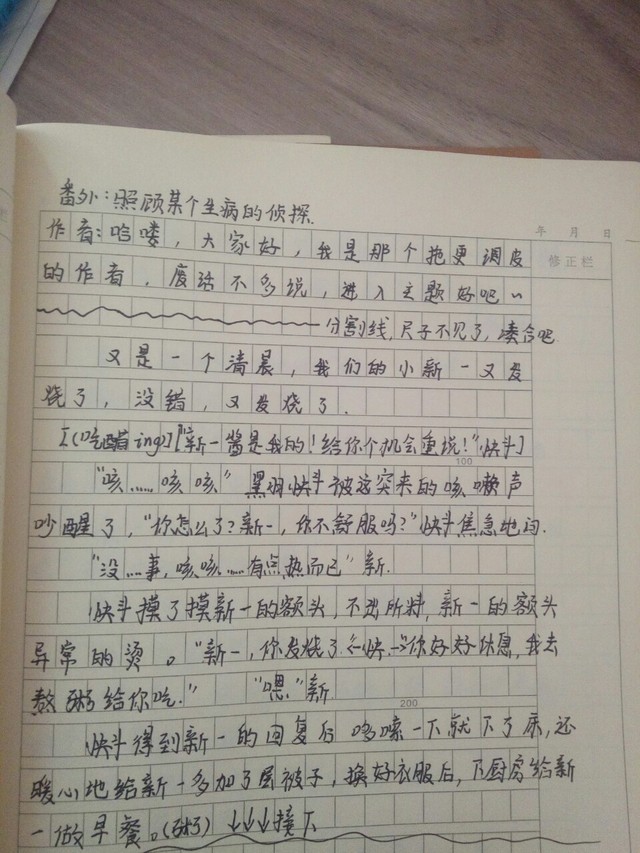 番外：照顾某个生病的侦探.
年 月 日
作者：哈喽，大家好，我是那个拖更调皮
修正栏
的作者，废话不多说，进入主题好吧~
分割线,尺子不见了,凑合吧
又是一个清晨，我们的小新一又发
烧了，没错，又发烧了.
[(吃醋ing)]["新一酱是我的!给你个机会重说!"快斗]
100
"咳……咳咳"黑羽快斗被这突来的咳嗽声
吵醒了，"你怎么了?新一,你不舒服吗?"快斗焦急地问.
"没……事,咳咳……有点热而已"新.
快斗摸了摸新一的额头，不出所料，新一的额头
异常的烫。"新一,你发烧了《快..》你好好休息,我去
熬粥给你吃." "嗯."新
200
快斗得到新一的回复后 哆嗦一下就下了床,还
暖心地给新一多加了层被子，换好衣服后，下厨房给新
一做早餐。(粥) ↓↓↓接下